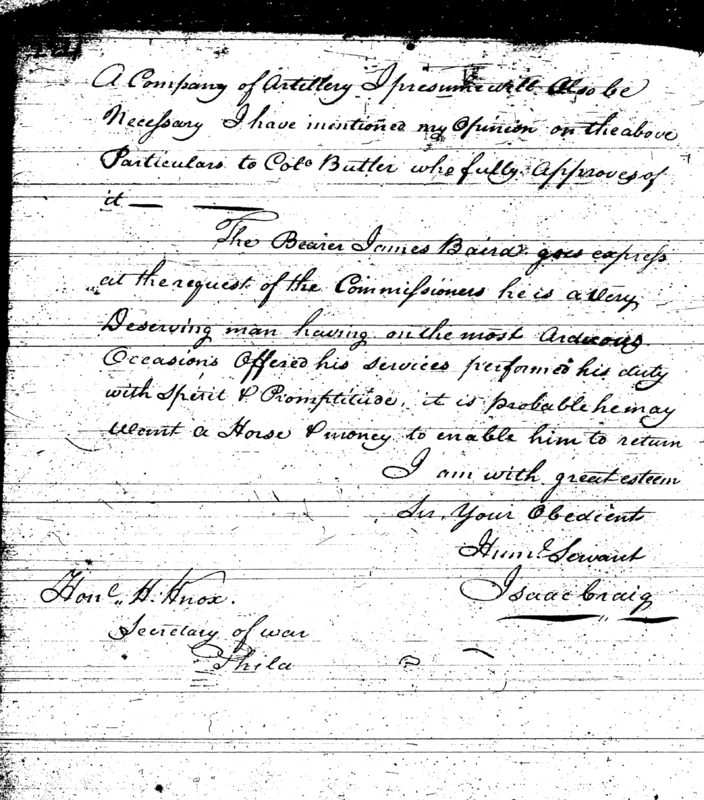 A Company of Artillery I presume will Also be
Necessary I have mentioned my Opinion on the above
Particulars to Colo Butler who fully Approves of
it — —
The Bearer James Baird goes express
at the request of the Commissioners he is a Very
Deserving man having on the most Arduous
Occasions Offered his services performed his duty
with Spirit & Promptitude, it is probable he may
Want a Horse & money to enable him to return
I am with great esteem
Sir, Your Obedient
Huml Servant
Isaac Craig
Honl H. Knox.
Secretary of war
Phila